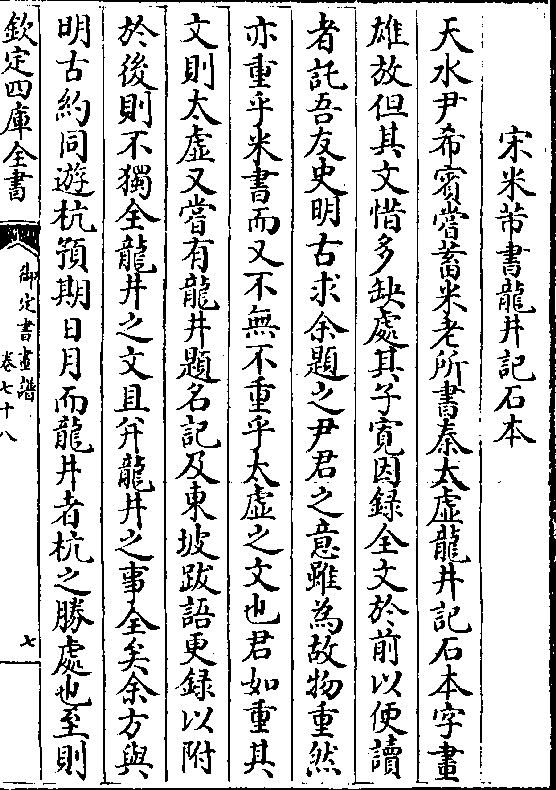 宋米芾書龍井記石本
天水尹希賓嘗蓄米老所書秦太虛龍井記石本字畫
雄放但其文惜多缺處其子寛因録全文於前以便讀
者託吾友史明古求余題之尹君之意雖為故物重然
亦重乎米書而又不無不重乎太虛之文也君如重其
文則太虛又嘗有龍井題名記及東坡跋語更録以附
於後則不獨全龍井之文且并龍井之事全矣余方與
明古約同遊杭預期日月而龍井者杭之勝處也至則
欽定四庫全書
御定書畫譜
卷七十八
七